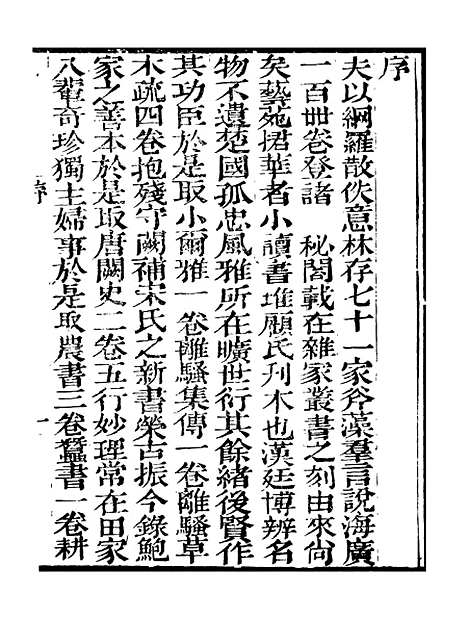 序
夫以網羅散佚意林存七十一家斧藻羣言說海廣
一百卌卷登諸　秘閣載在雜家叢書之刻由來尙
矣藝苑捃華者小讀書堆顧氏刋木也漢廷博辨名
物不遺楚國孤忠風雅所在曠世衍其餘緒後賢作
其功臣於是取小爾雅一卷離騷集傳一卷離騷草
木疏四卷抱殘守闕補宋氏之新書榮古振今錄鮑
家之善本於是取唐闕史二卷五行妙理常在田家
八輩奇珍獨主婦事於是取農書三卷蠶書一卷耕
序
一